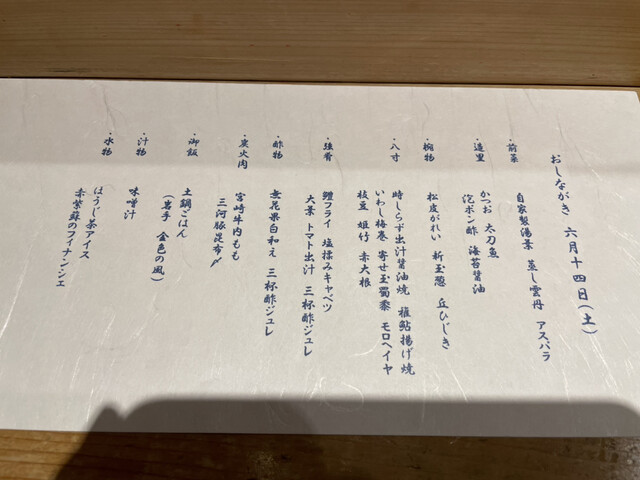 おしながき 六月十四日(土)
・前菜
自家製湯葉 蒸し雲丹 アスパラ
・造里
かつお 太刀魚
泡ポン酢 海苔醤油
・椀物
松皮がれい 新玉葱 丘ひじき
・八寸
時しらず出汁醤油焼 稚鮎揚げ焼
いわし梅巻 寄せ玉蜀黍 モロヘイヤ
枝豆 姫竹 赤大根
・強肴
鱧フライ 塩揉みキャベツ
大葉 トマト出汁 三杯酢ジュレ
・酢物
無花果白和え 三杯酢ジュレ
・炭火肉
宮崎牛内もも
三河豚昆布〆
・御飯
土鍋ごはん
(岩手 金色の風)
・汁物
味噌汁
・水物
ほうじ茶アイス
赤紫蘇のフィナンシェ